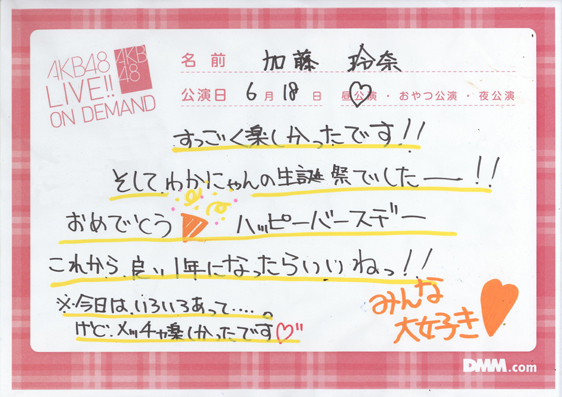 AKB48
LIVE!!
ON DEMAND
AKB
48
名前 加藤 玲奈
公演日 6月18日 昼公演・おやつ公演・夜公演
すっごく楽しかったです!!
そしてわかにゃんの生誕祭でしたー!!
おめでとう ハッピーバースデー
これから良い1年になったらいいねっ!!
※今日は、いろいろあって・・・・。
けど、メッチャ楽しかったです♡"
みんな
大好き
DMM.com